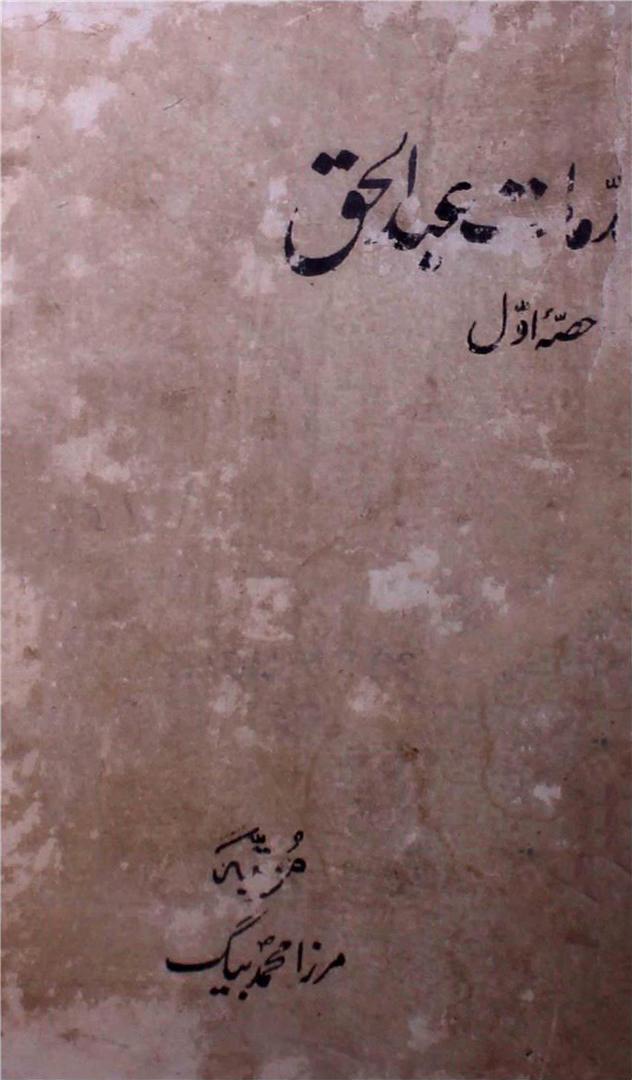 دّمات عبدالحق
حصّۂ اوّل
مُرتّبہ
مرزا محمد بیگ